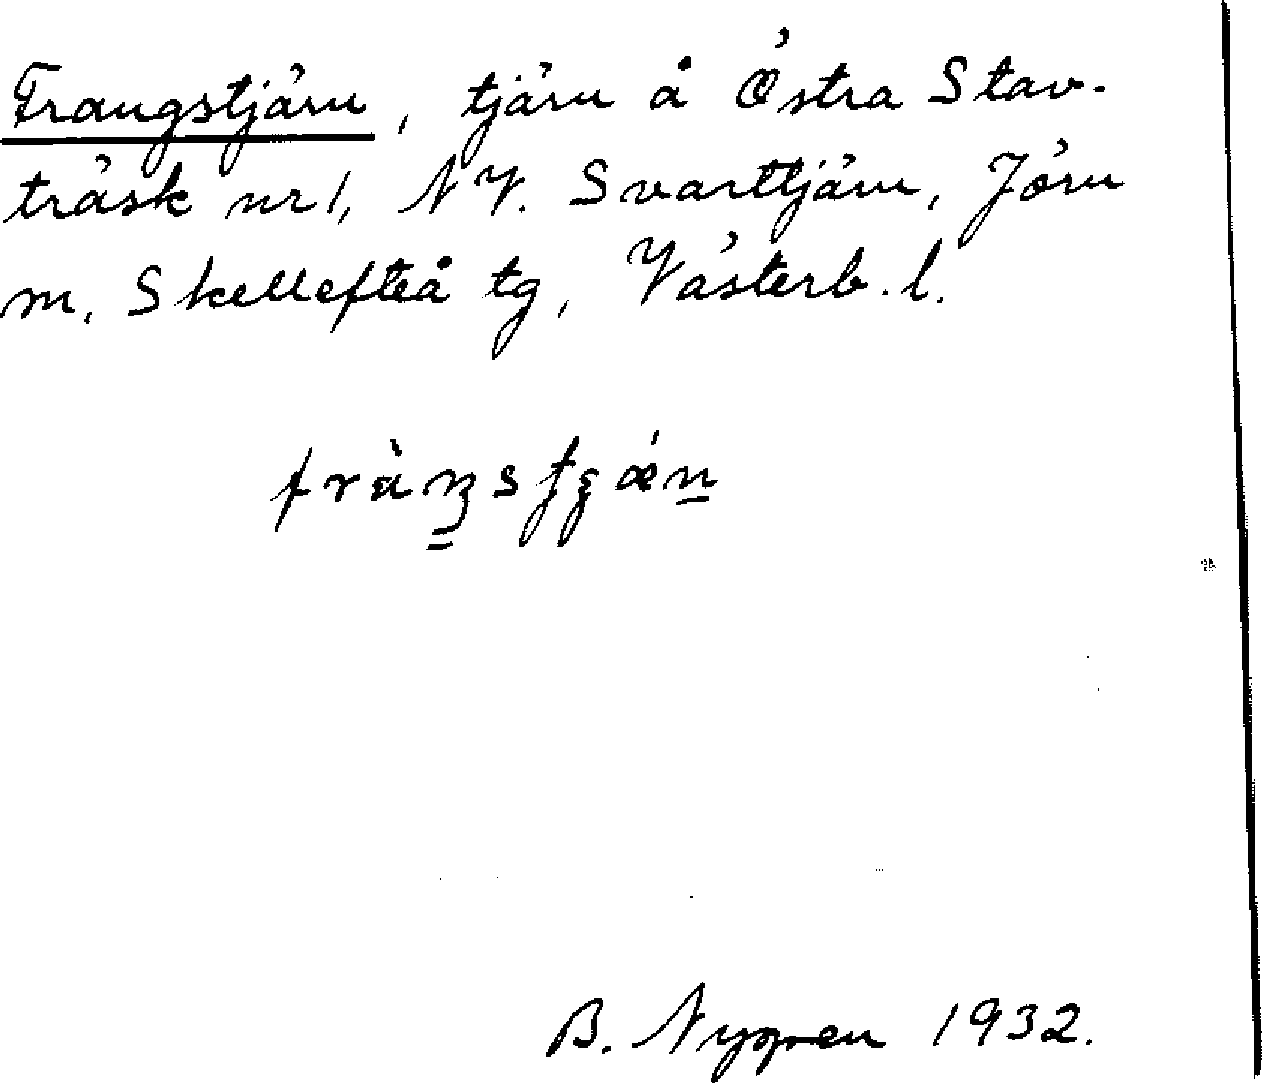 Frangstjärn, tjärn å Östra Stav-
träsk nr 1, NV. Svarttjärn, Jörn
m. Skellefteå tg, Västerb. l.
B. Nygren 1932.